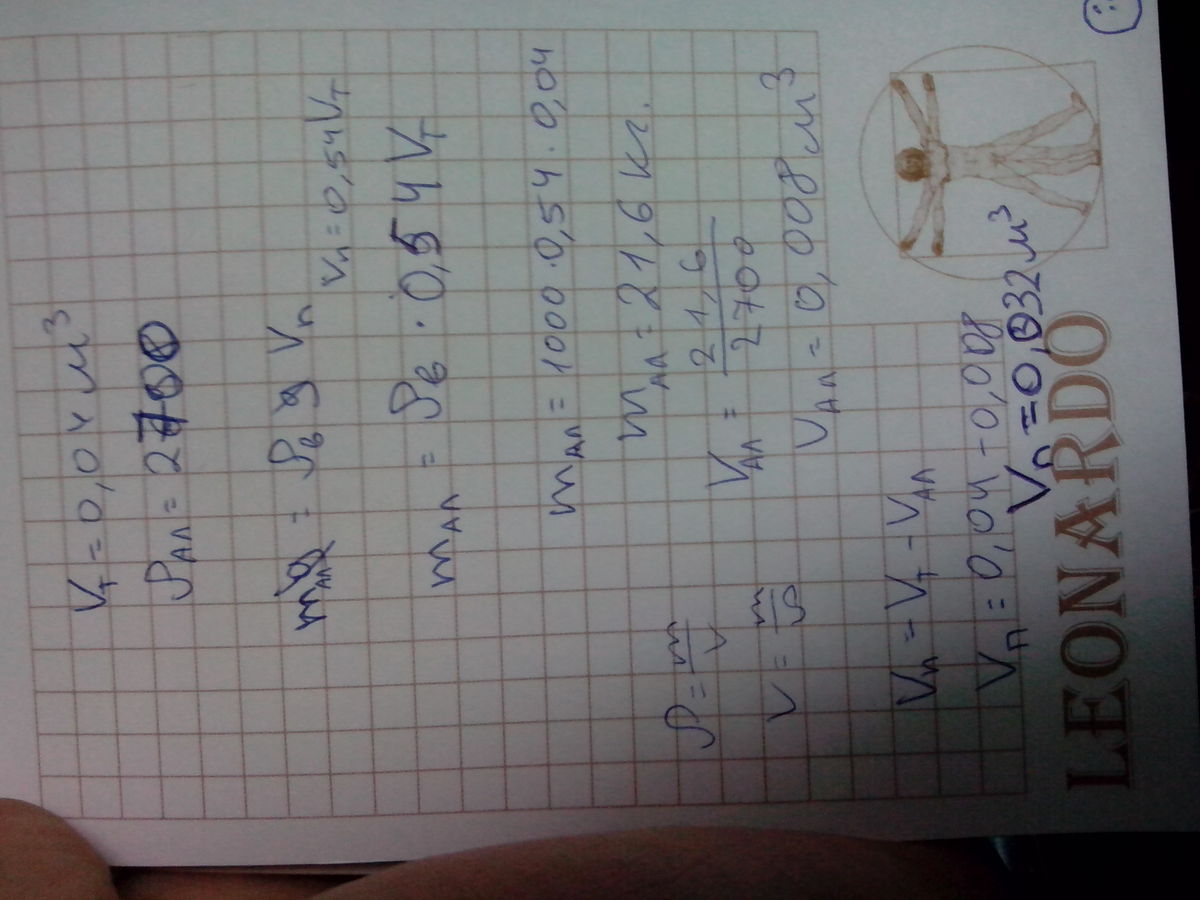 Vт = 0,04 м³
ρал = 2700
mал g = ρв g Vп
Vп = 0,54 Vт
mал = ρв · 0,54 Vт
mал = 1000 · 0,54 · 0,04
mал = 21,6 кг.
ρ = m/V
Vал = 21,6/2700
V = m/ρ
Vал = 0,008 м³
Vп = Vт - Vал
Vп = 0,04 - 0,008
Vп = 0,032 м³
LEONARDO